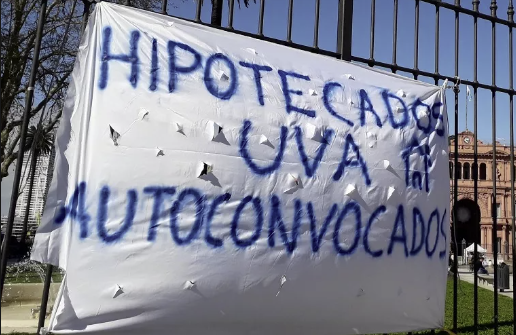 HIPOTECADOS
UVA
AUTOCONVOCADOS